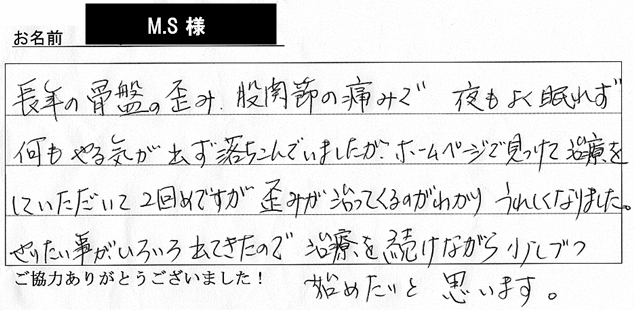 お名前 M.S 様
長年の骨盤の歪み、股関節の痛みで 夜もよく眠れず
何もやる気が出ず落ちこんでいましたが、ホームページで見つけて治療を
していただいて2回めですが歪みが治ってくるのがわかりうれしくなりました。
やりたい事がいろいろ出てきたので 治療を続けながら少しづつ
ご協力ありがとうございました！ 始めたいと思います。